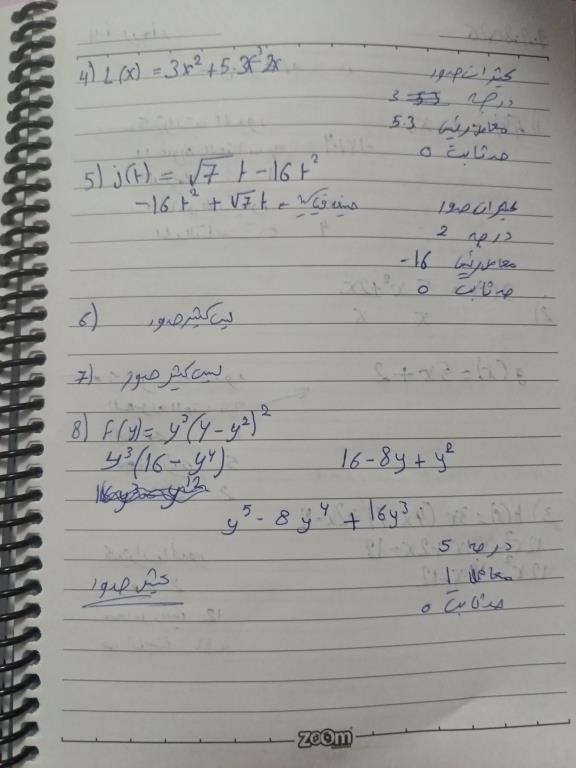 4) L(x) = 3x² + 5.3x³ - 2x
كثيرات حدود
درجة 3
معامل رئيسي 53
حد ثابت 0
5) j(t) = √7 t - 16 t²
-16 t² + √7 t
كثيرات حدود
درجة 2
معامل رئيسي -16
حد ثابت 0
6) ليس كثير حدود
7) ليس كثير حدود
8) F(y) = y³(4 - y²)²
y³(16 - y⁴)
16 - 8y + y²
y⁵ - 8y⁴ + 16y³
درجة 5
معامل 1
حد ثابت 0
كثير حدود
zoom